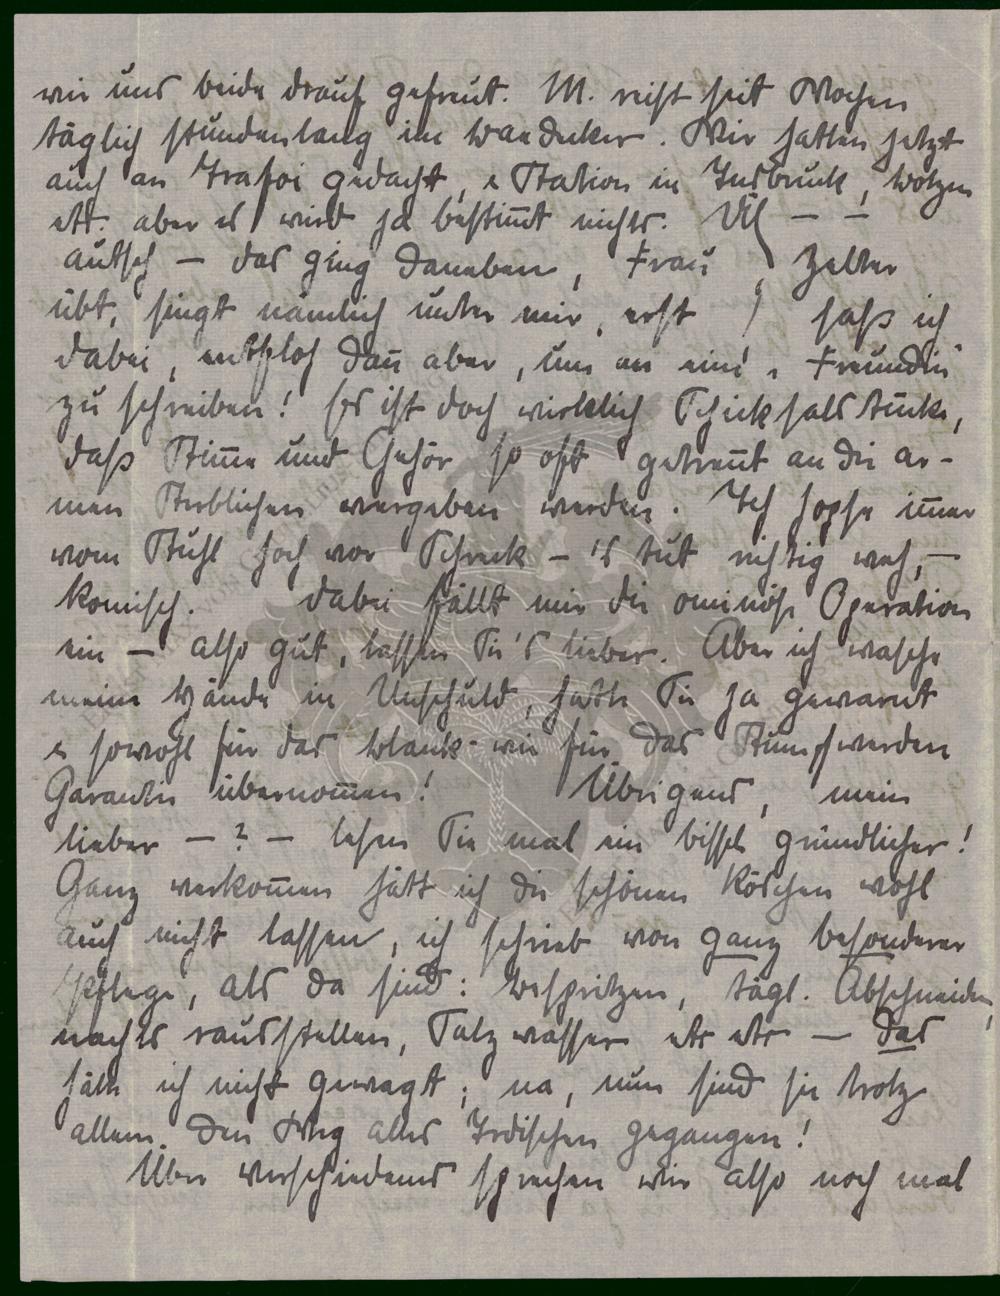 wir uns beide drauf gefreut. M. reist seit Wochen
täglich stundenlang im Baedecker. Wir hatten jetzt
auch an Trafoi gedacht, e Station in Insbruck, Bozen
etc. aber es wird ja bestim̅t nichts.
autsch — das ging daneben, Frau Zelter
übt, singt nämlich unter mir, erst saß ich
dabei, entschloß dan̅ aber, um an eine Freundin
zu schreiben! Es ist doch wirklich Schicksalstücke,
daß Stim̅e und Gehör so oft getren̅t an die ar-
men Sterblichen vergeben werden. Ich hopse im̅er
vom Stuhl hoch vor Schreck — 's tut richtig weh, —
komisch. Dabei fällt mir die ominöse Operation
ein — also gut, lassen Sie's lieber. Aber ich wasche
meine Hände in Unschuld, hatte Sie ja gewarnt
e sowohl für das Blank- wie für das Stumpfwerden
Garantie übernom̅en! Übrigens, mein
lieber — ? — lesen Sie mal ein bissel gründlicher!
Ganz verkom̅en hätt ich die schönen Röschen wohl
auch nicht lassen, ich schrieb von ganz besonderer
Pflege, als da sind: Bespritzen, tägl. Abschneiden,
nachts rausstellen, Salzwasser etc etc — das
hätte ich nicht gewagt; na, nun sind sie trotz
allem den Weg alles Irdischen gegangen!
Über verschiedenes sprechen wir also noch mal